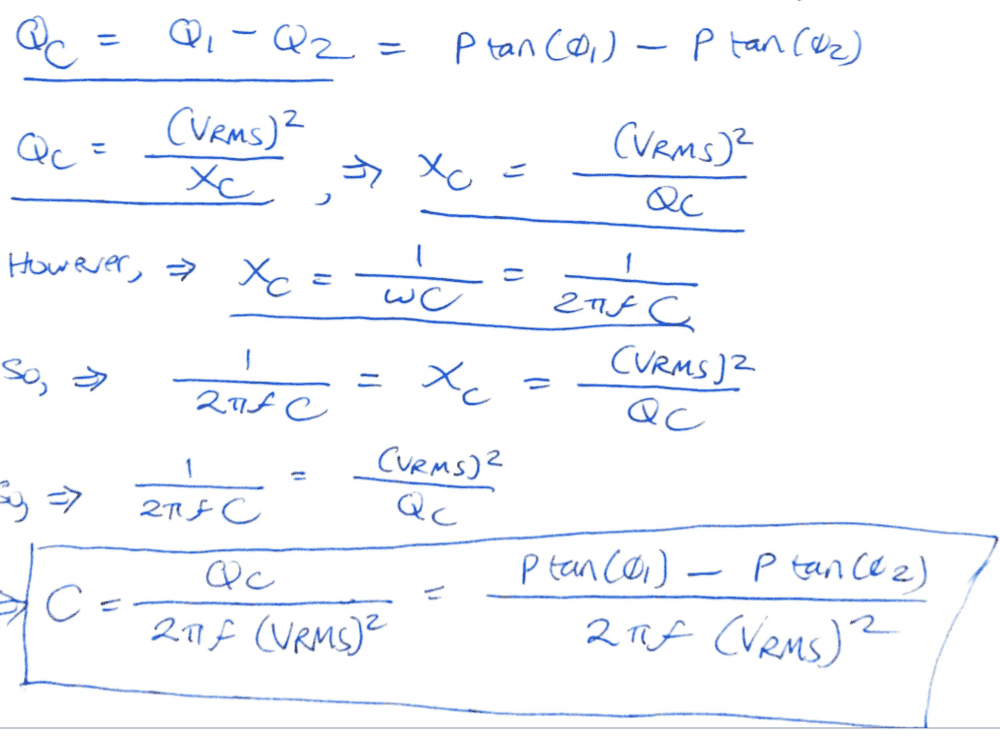 Qc = Q1 - Q2 = P tan(Ø1) - P tan(Ø2)
Qc = (VRMS)² / Xc , ⇒ Xc = (VRMS)² / Qc
However, ⇒ Xc = 1 / ωC = 1 / 2πfC
So, ⇒ 1 / 2πfC = Xc = (VRMS)² / Qc
So, ⇒ 1 / 2πfC = (VRMS)² / Qc
⇒ C = Qc / 2πf (VRMS)² = P tan(Ø1) - P tan(Ø2) / 2πf (VRMS)²